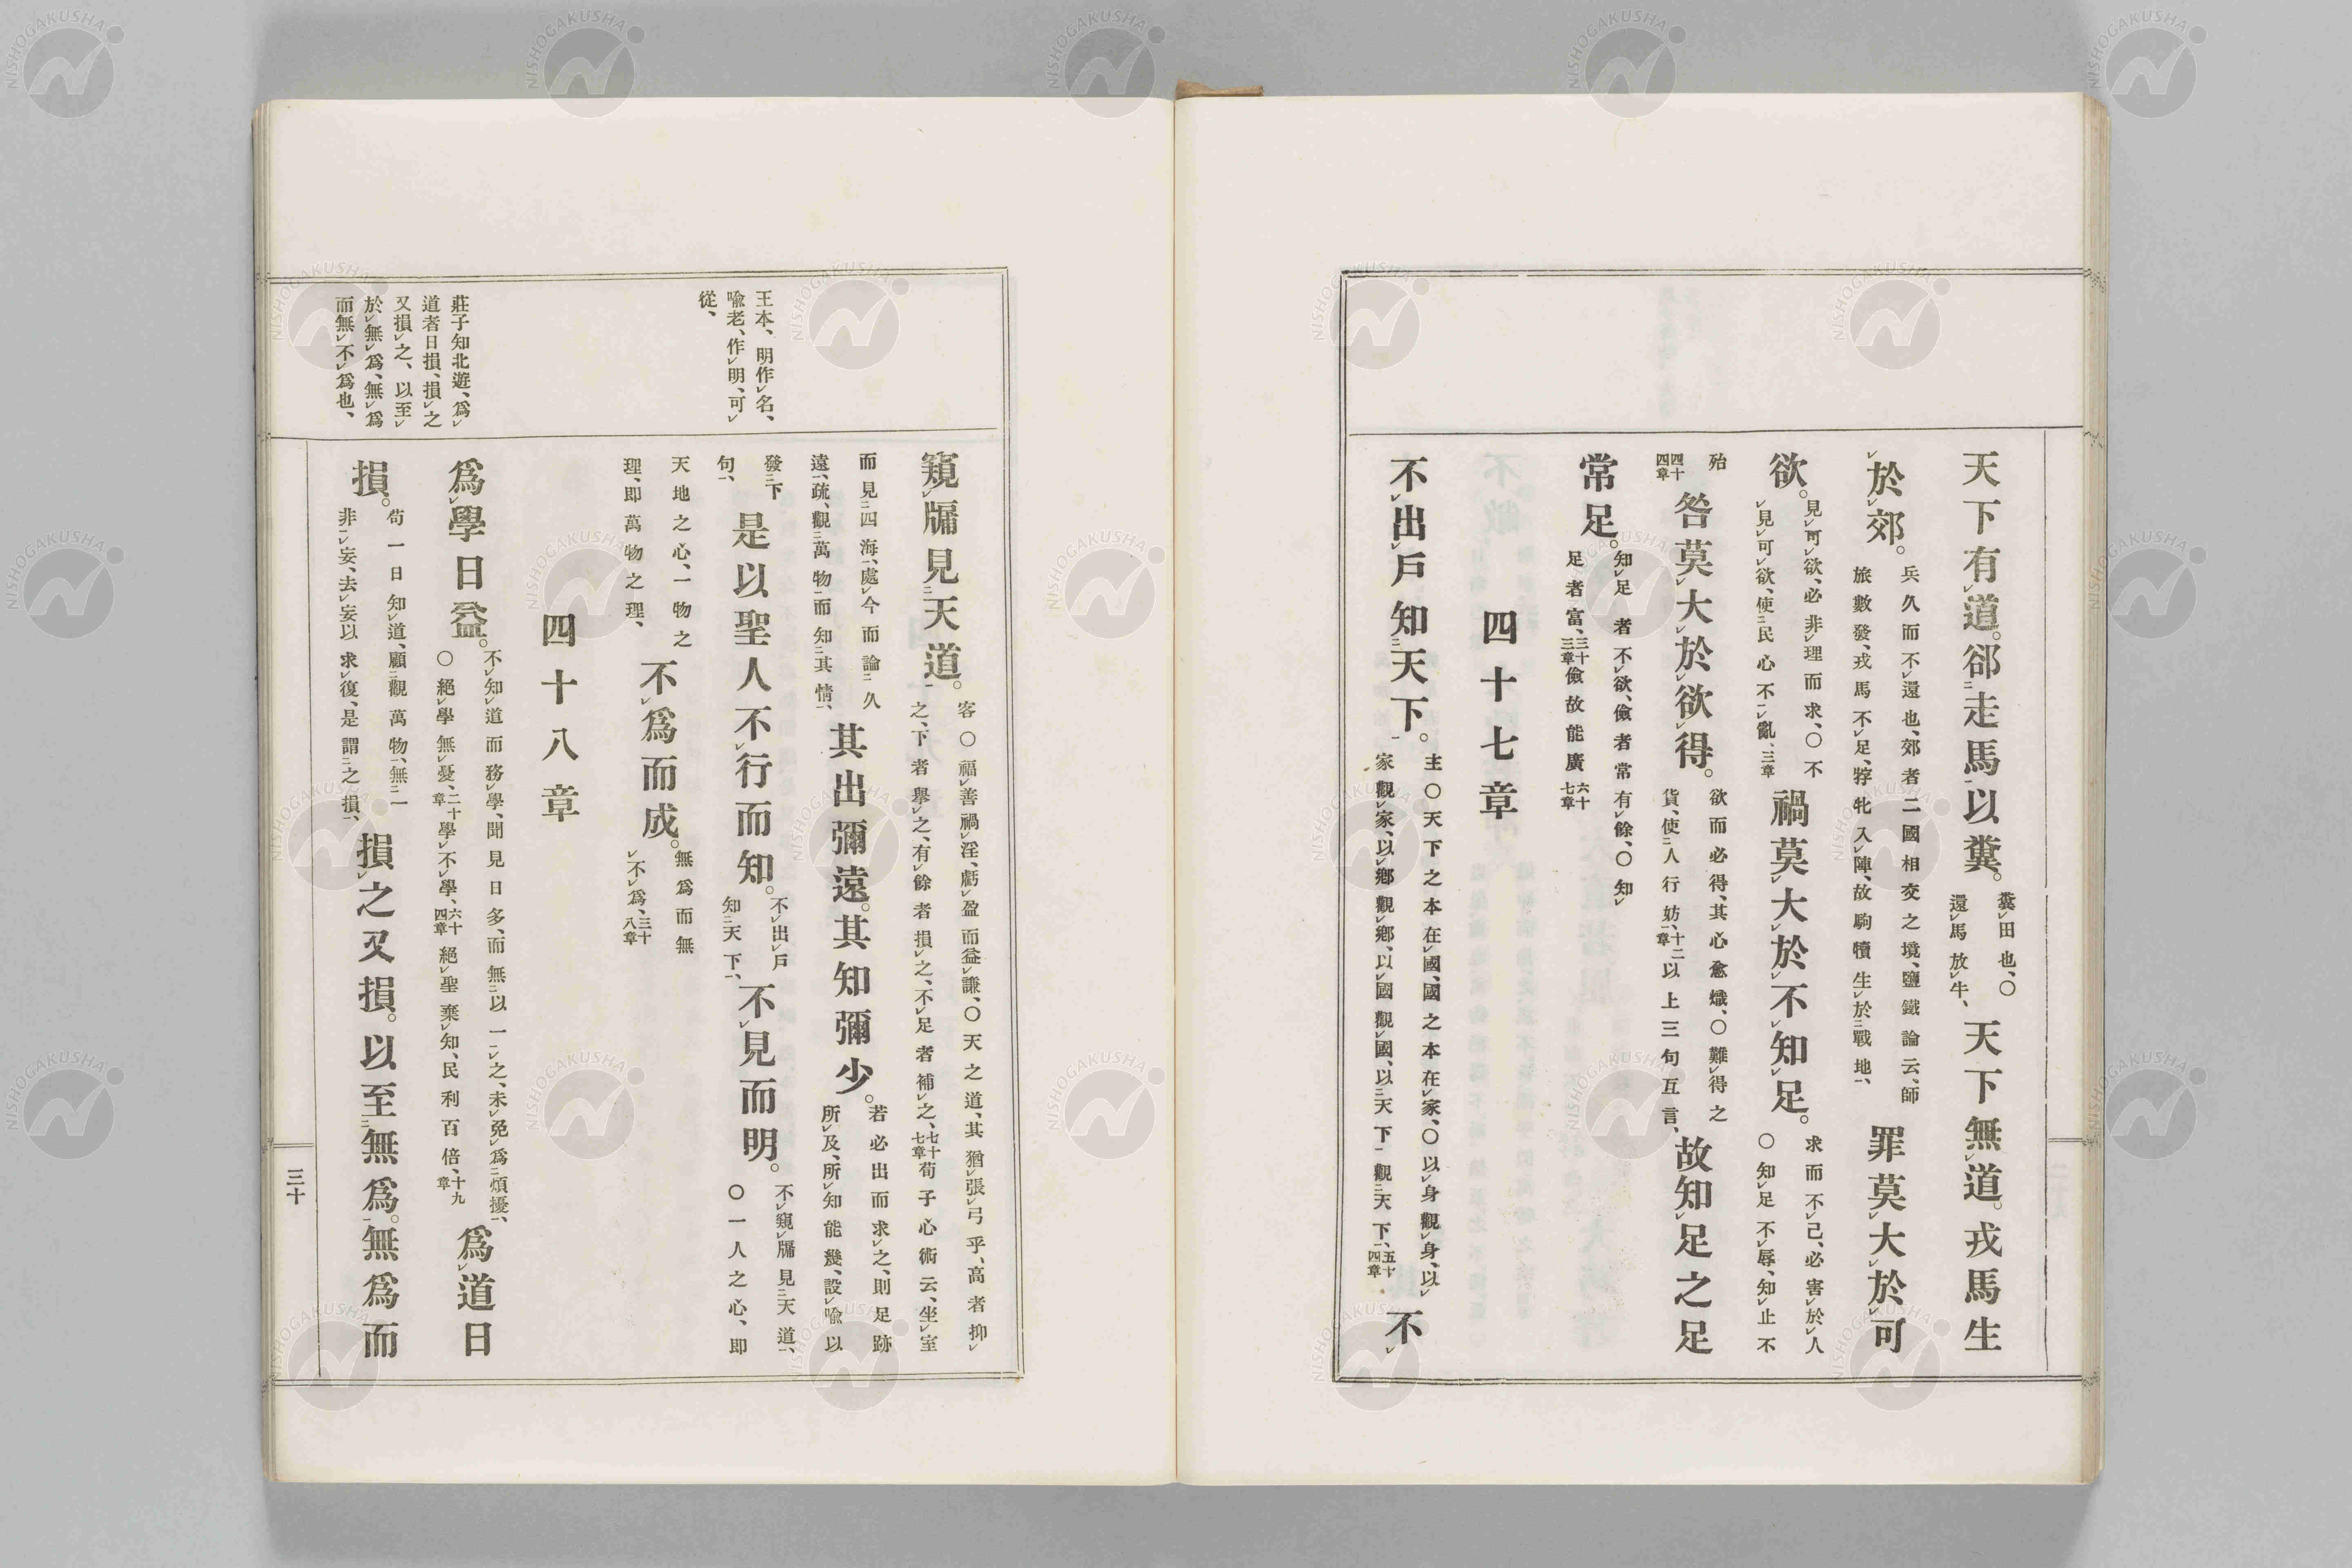 天下有道。郤走馬以糞。糞田也、〇還馬放牛、天下無道。戎馬生
於郊。兵久而不還也、郊者二國相交之境、鹽鐵論云、師旅數發、戎馬不足、牸牝入陣、故駒犢生於戰地、罪莫大於可
欲。見可欲、必非理而求、〇不見可欲、使民心不亂、三章禍莫大於不知足。求而不已、必害於人〇知足不辱、知止不
殆四十四章咎莫大於欲得。欲而必得、其心愈熾、〇難得之貨、使人行妨、十二章以上三句互言、故知足之足
常足。知足者不欲、儉者常有餘、〇知足者富、三十三章儉故能廣六十七章
四十七章
不出戶知天下。主〇天下之本在國、國之本在家、〇以身觀身、以家觀家、以鄉觀鄉、以國觀國、以天下觀天下、五十四章不
窺牖見天道。客〇福善禍淫、虧盈而益謙、〇天之道、其猶張弓乎、高者抑之、下者擧之、有餘者損之、不足者補之、七十七章荀子心術云、坐室
而見四海、處今而論久遠、疏觀萬物而知其情、其出彌遠。其知彌少。若必出而求之、則足跡所及、所知能幾、設喩以
發下句、是以聖人不行而知。不出戶知天下、不見而明。不窺牖見天道、〇一人之心、卽
天地之心、一物之理、卽萬物之理、不爲而成。無爲而無不爲、三十八章
四十八章
爲學日益。不知道而務學、聞見日多、而無以一之、未免爲煩擾、〇絕學無憂、二十章學不學、六十四章絕聖棄知、民利百倍、十九章爲道日
損。苟一日知道、顧觀萬物、無一非妄、去妄以求復、是謂之損、損之又損。以至無爲。無爲而
王本、明作名、
喩老、作明、可
從、
莊子知北遊、爲
道者日損、損之
又損之、以至
於無爲、無爲
而無不爲也、
三十
NISHOGAKUSHA